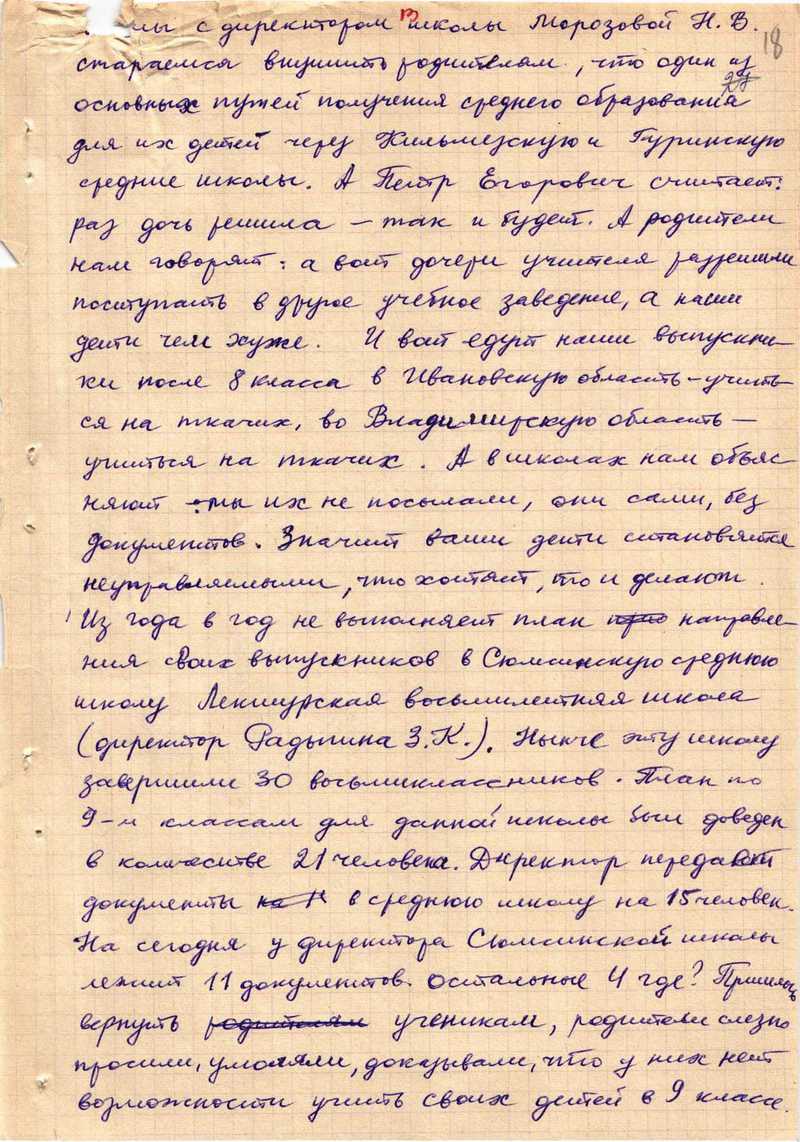 мы с директором школы Морозовой Н. В.
13
18
стараемся внушить родителям, что один из
27
основных путей получения среднего образования
для их детей через Кильмезскую и Гуринскую
средние школы. А Петр Егорович считает:
раз дочь решила – так и будет. А родители
нам говорят: а вот дочери учителя разрешили
поступать в другое учебное заведение, а наши
дети чем хуже. И вот едут наши выпускни-
ки после 8 класса в Ивановскую область – учить-
ся на ткачих, во Владимирскую область –
учиться на ткачих. А в школах нам объяс-
няют: мы их не посылали, они сами, без
документов. Значит ваши дети становятся
неуправляемыми, что хотят, то и делают.
Из года в год не выполняет план направле-
ния своих выпускников в Сюмсинскую среднюю
школу Лекшурская восьмилетняя школа
(директор Радыгина З.К.). Нынче эту школу
завершили 30 восьмиклассников. План по
9-м классам для данной школы был доведен
в количестве 21 человека. Директор передает
документы на в среднюю школу на 15 человек.
На сегодня у директора Сюмсинской школы
лежит 11 документов. Остальные 4 где? Пришлось
вернуть родителям ученикам, родители слезно
просили, умоляли, доказывали, что у них нет
возможности учить своих детей в 9 классе.